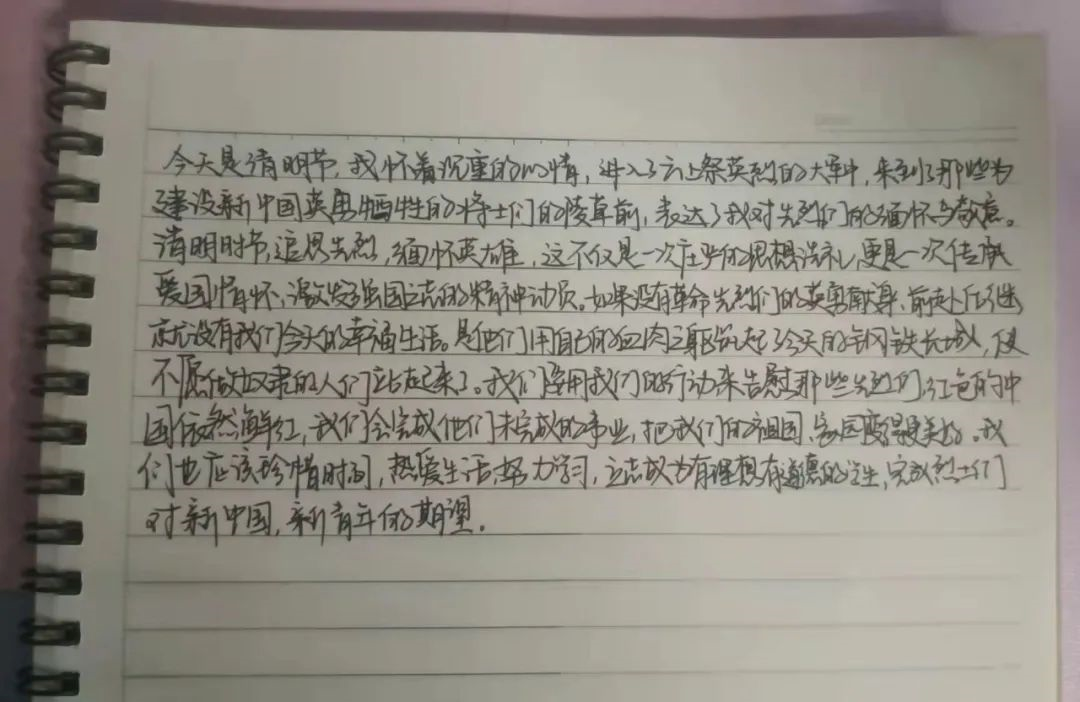 今天是清明节，我怀着沉重的心情，进入了云上祭英烈的大军中，来到了那些为
建设新中国英勇牺牲的将士们的陵草前，表达了我对先烈们的缅怀与敬意。
清明时节，追思先烈，缅怀英雄，这不仅是一次庄严的思想洗礼，更是一次传承
爱国情怀、激发强国之志的精神动员。如果没有革命先烈们的英勇献身、前赴后继
就没有我们今天的幸福生活。是他们用自己的血肉之躯筑起了今天的钢铁长城，使
不愿做奴隶的人们站起来了。我们用我们的行动来告慰那些先烈们，红色的中
国依然鲜红，我们会完成他们未完成的事业，把我们的祖国、家国变得更美好。我
们也应该珍惜时间，热爱生活，努力学习，立志成为有理想有道德的学生，完成烈士们
对新中国，新青年的期望。